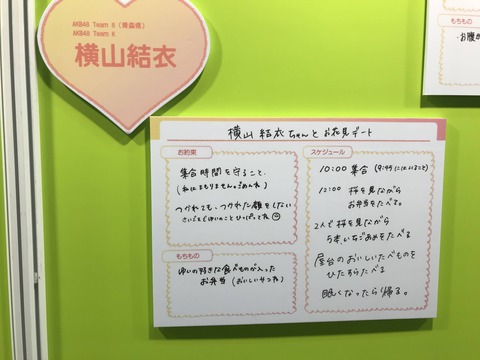 AKB48 Team 8（青森県）
AKB48 Team K
横山結衣
もちもの
・お腹が
横山 結衣 ちゃんと お花見デート
お約束
集合時間を守ること、
つかれても、つかれた顔をしない
もちもの
ゆいの好きな食べものが入った
お弁当（おいしいヤツね）
スケジュール
10:00 集合（9:45にはいること）
12:00 桜を見ながら
お弁当をたべる。
2人で桜を見ながら
5本いちごあめをたべる
屋台のおいしいたべものを
ひたすらたべる
眠くなったら帰る。